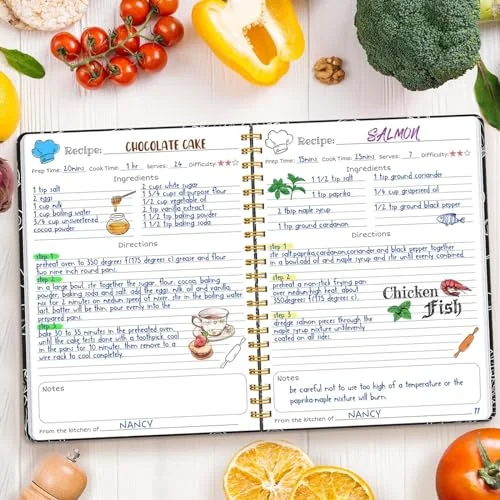 Recipe: CHOCOLATE CAKE
Prep Time: 20mins Cook Time: 1 hr Serves: 24 Difficulty:
Ingredients
1 tsp salt
2 eggs
1 cup milk
1 cup boiling water
3/4 cup unsweetened
cocoa powder
2 cups white sugar
1 3/4 cups all purpose flour
1/2 cup vegetable oil
2 tsp vanilla extract
1 1/2 tsp baking powder
1 1/2 tsp baking soda
Directions
step 1
preheat oven to 350 degrees f(175 degrees c). grease and flour
two nine inch round pans.
step 2
in a large bowl, stir together the sugar, flour, cocoa, baking
powder, baking soda and salt. add the eggs, milk, oil and vanilla,
mix for 2 minutes on medium speed of mixer. stir in the boiling water
last. batter will be thin. pour evenly into the
prepared pans.
step 3
bake 30 to 35 minutes in the preheated oven,
until the cake tests done with a toothpick. cool
in the pans for 10 minutes, then remove to a
wire rack to cool completely.
Notes
From the kitchen of NANCY
Recipe: SALMON
Prep Time: 15mins Cook Time: 25mins Serves: 7 Difficulty:
Ingredients
1 1/2 tsp salt
1 tsp paprika
2 tbsp maple syrup
1 tsp ground cardamon
1 tsp ground coriander
1/4 cup grapeseed oil
1/2 tsp ground black pepper
Directions
step 1
stir salt,paprika,cardamon,coriander,and black pepper together
in a bowl,add oil and maple syrup and stir until evenly combined.
step 2
preheat a non-stick frying pan
over medium high heat, about
350degrees f(175 degrees c).
step 3
dredge salmon pieces through the
maple syrup mixture untilevenly
coated on all sides.
Chicken
Fish
Notes
be careful not to use too high of a temperature or the
paprika-maple mixture will burn.
From the kitchen of NANCY
11